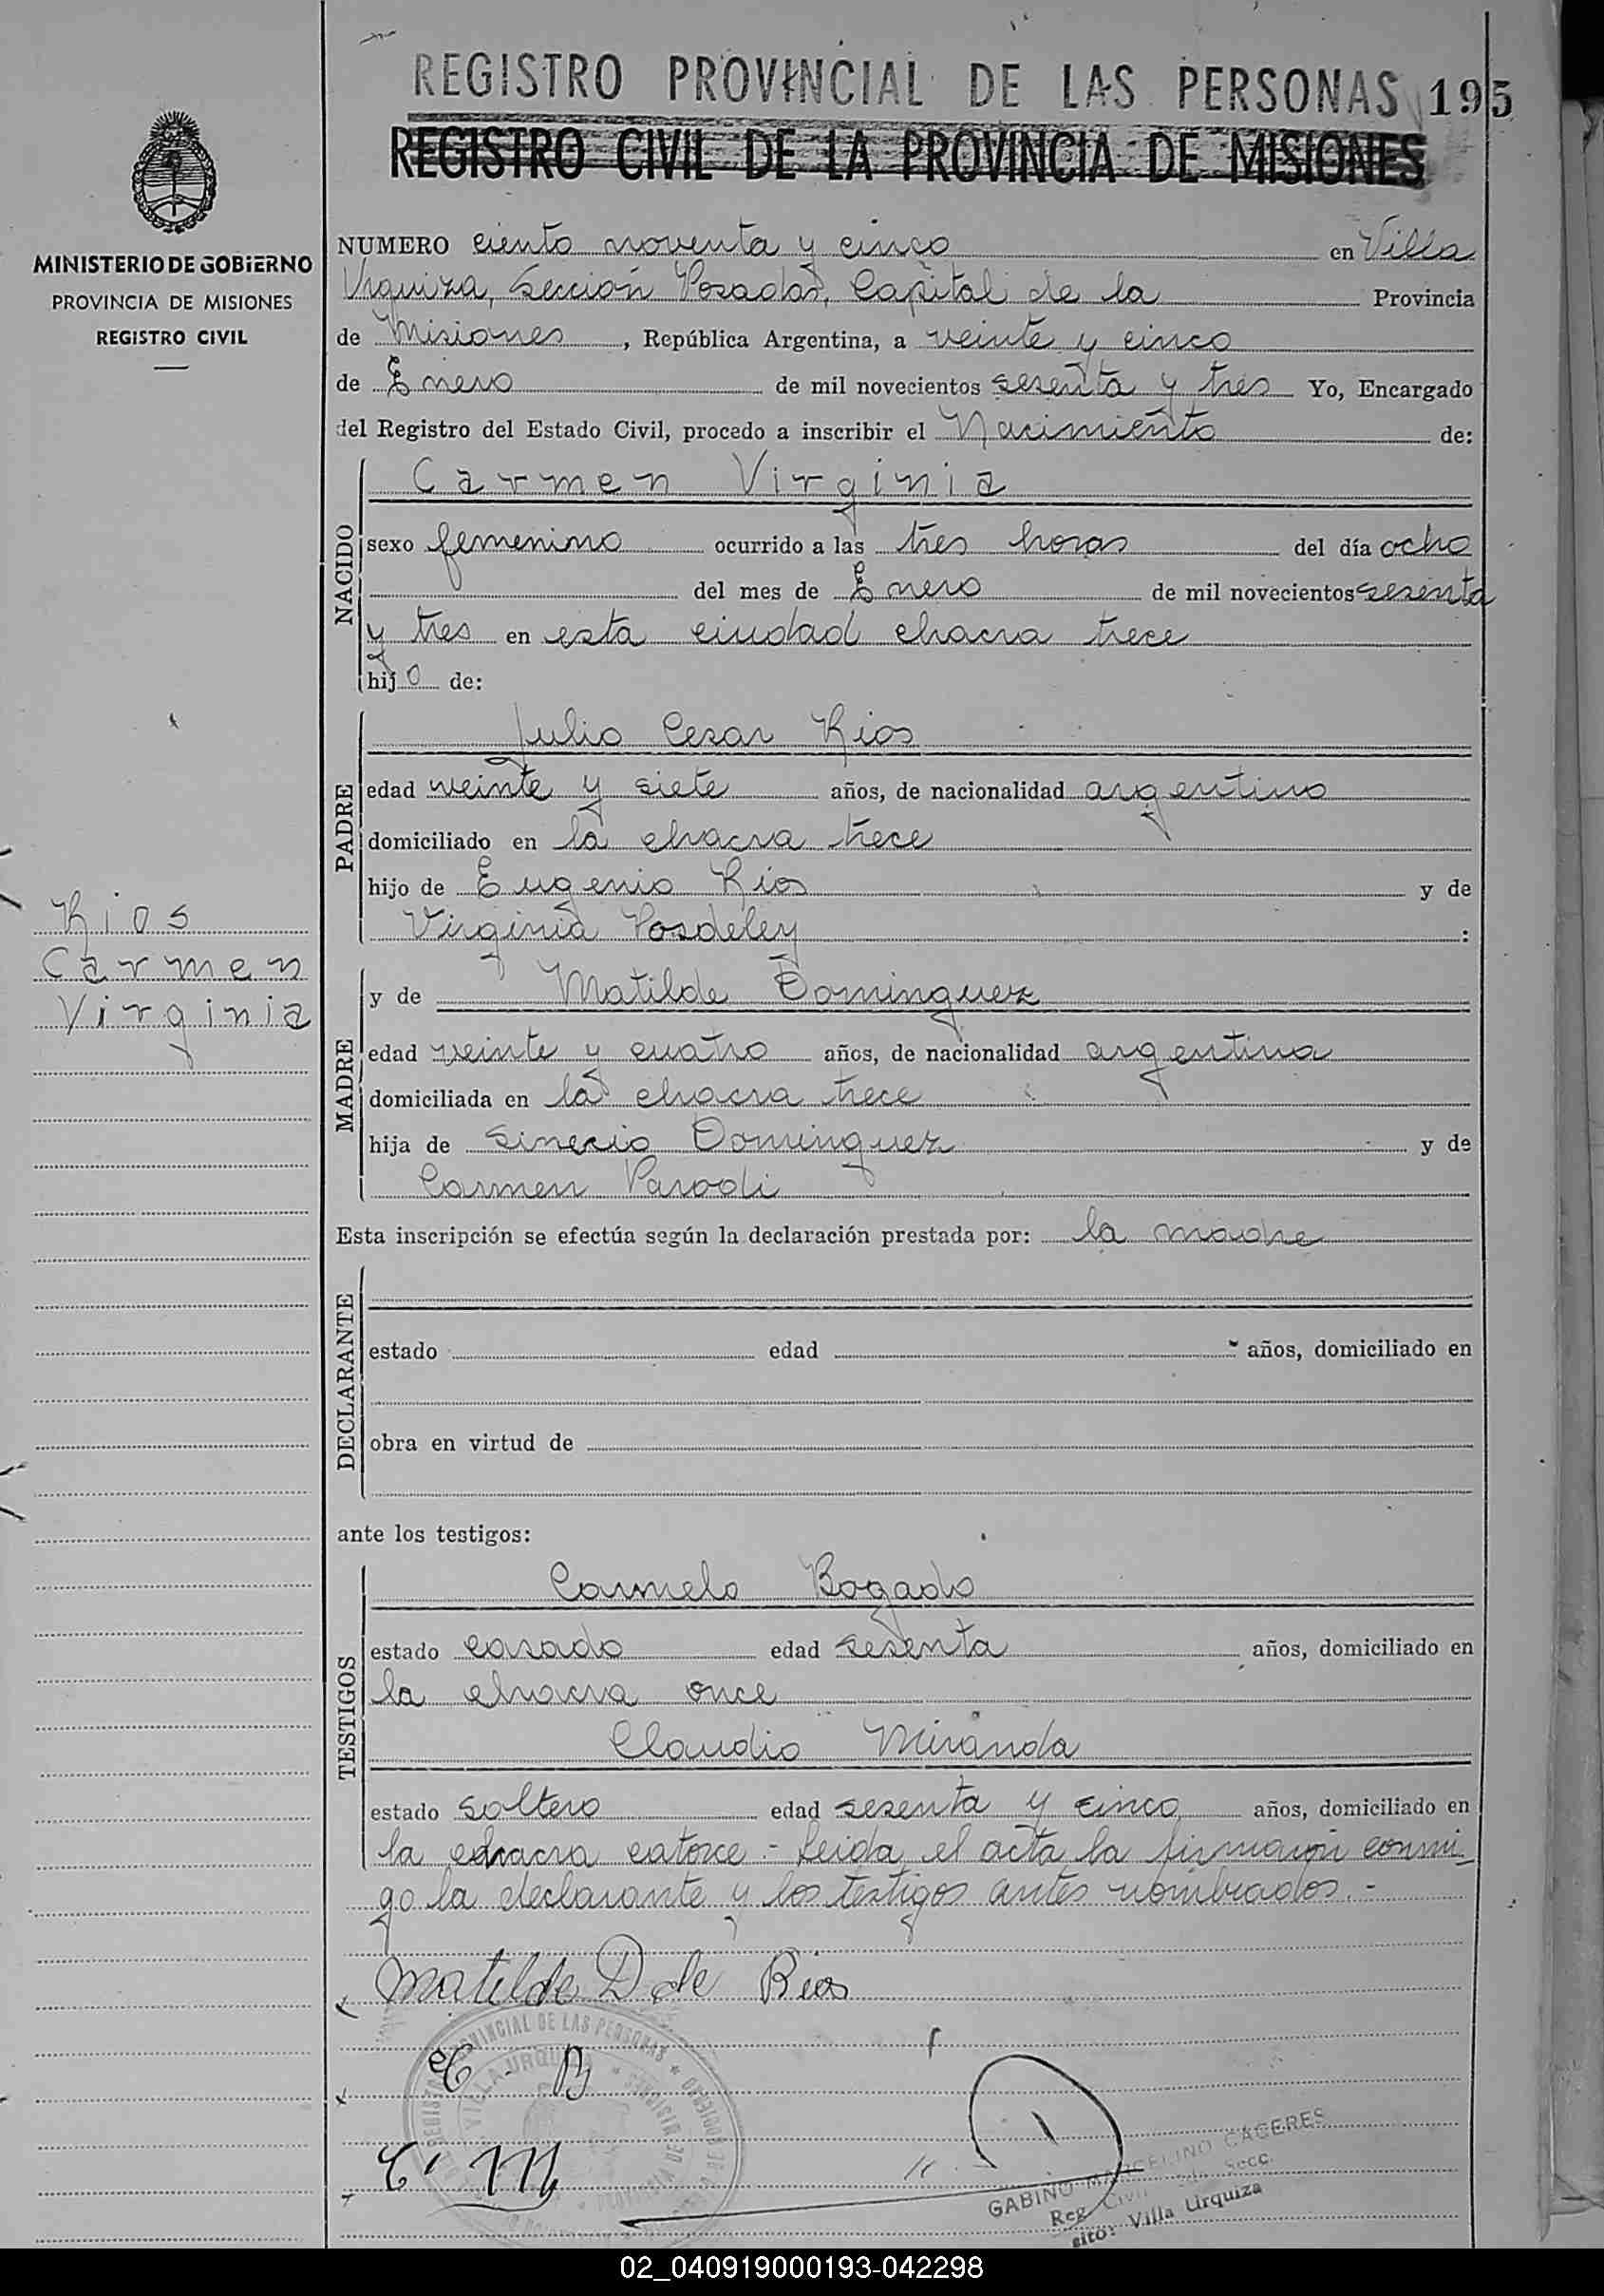 REGISTRO PROVINCIAL DE LAS PERSONAS 195
REGISTRO CIVIL DE LA PROVINCIA DE MISIONES
MINISTERIO DE GOBIERNO
PROVINCIA DE MISIONES
REGISTRO CIVIL
NUMERO ciento noventa y cinco en Villa
Urquiza, Sección Posadas, Capital de la Provincia
de Misiones, República Argentina, a veinte y cinco
de Enero de mil novecientos sesenta y tres Yo, Encargado
del Registro del Estado Civil, procedo a inscribir el Nacimiento de:
NACIDO
Carmen Virginia
sexo femenino ocurrido a las tres horas del día ocho
del mes de Enero de mil novecientos sesenta
y tres en esta ciudad chacra trece
hijo de:
PADRE
Julio Cesar Rios
edad veinte y siete años, de nacionalidad argentino
domiciliado en la chacra trece
hijo de Eugenio Rios y de
Virginia Posdeley :
Rios
Carmen
Virginia
MADRE
y de Matilde Dominguez
edad veinte y cuatro años, de nacionalidad argentina
domiciliada en la chacra trece
hija de Sinecio Dominguez y de
Carmen Parodi
Esta inscripción se efectúa según la declaración prestada por: la madre
DECLARANTE
estado edad años, domiciliado en
obra en virtud de
ante los testigos:
TESTIGOS
Carmelo Bogado
estado casado edad sesenta años, domiciliado en
la chacra once
Claudio Miranda
estado soltero edad sesenta y cinco años, domiciliado en
la chacra catorce.- Leida el acta la firmaron conmi-
go la declarante y los testigos antes nombrados.-
Matilde D de Rios
C - B
C. M
GABINO MARCELINO CACERES
Reg. Civil Secc.
sito: Villa Urquiza
02_040919000193-042298